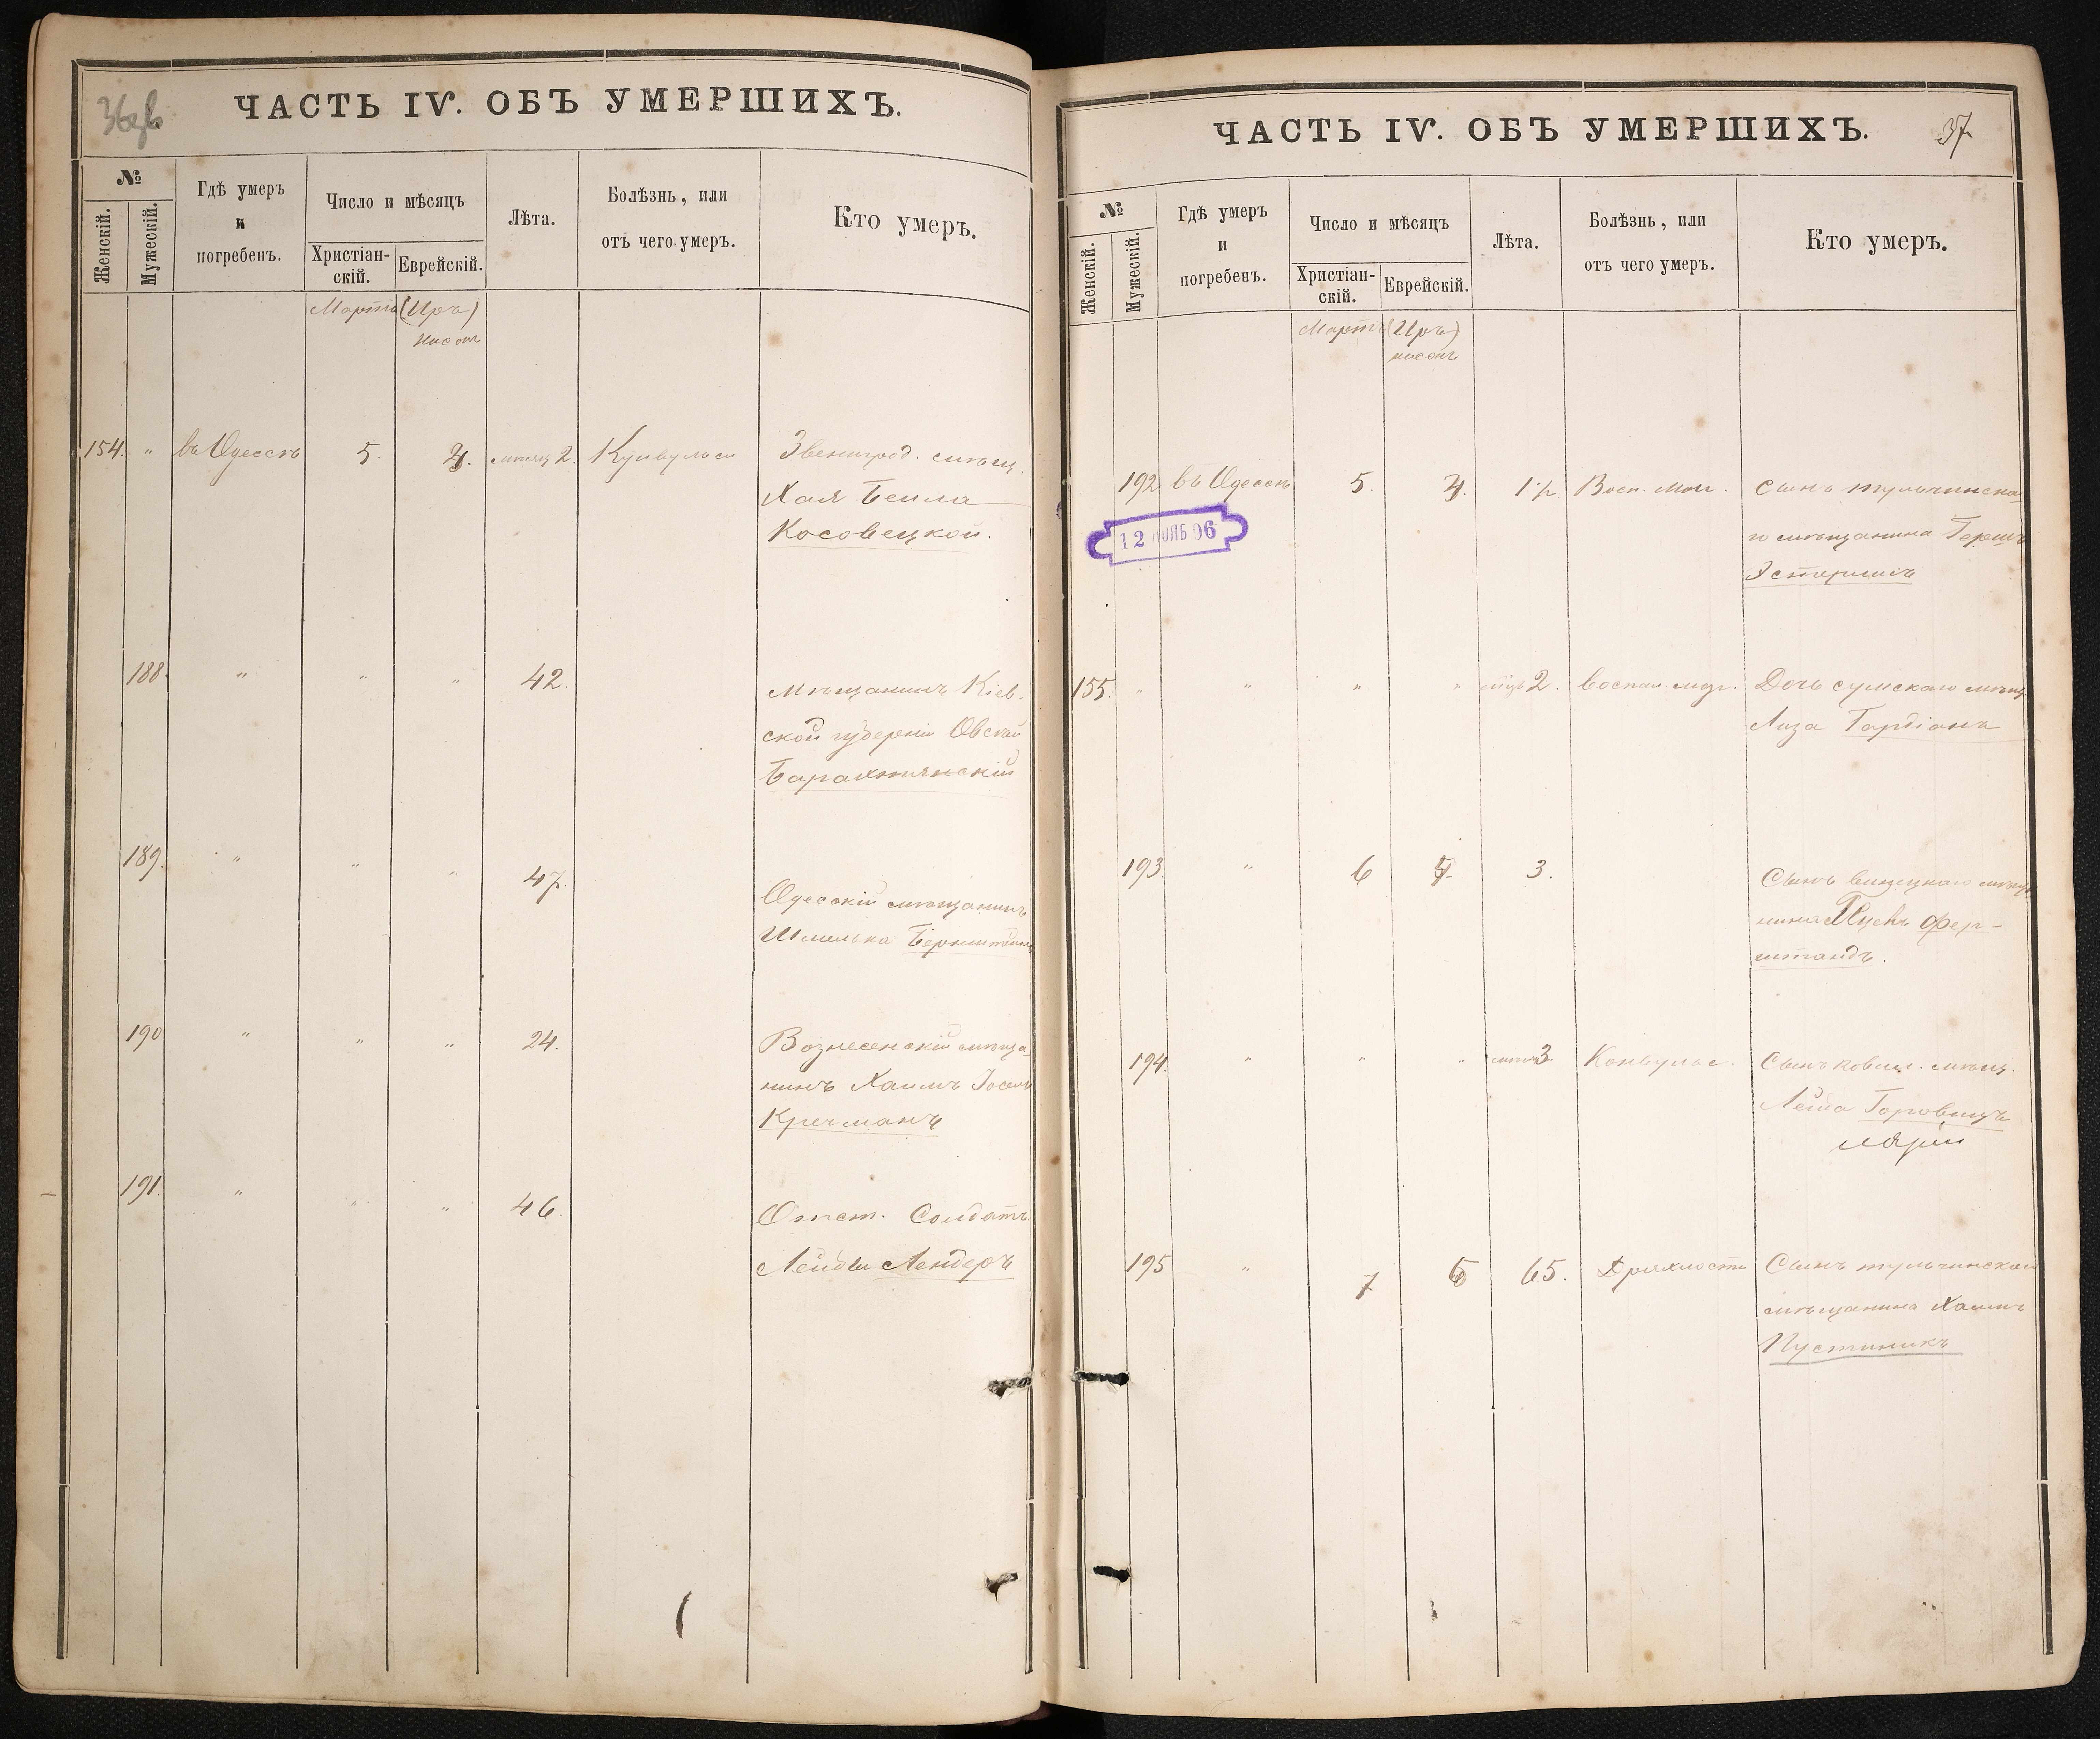 36об
ЧАСТЬ IV. ОБЪ УМЕРШИХЪ.
№
Женскій.
Мужескій.
Гдѣ умеръ
и
погребенъ.
Число и мѣсяцъ
Христіан-
скій.
Еврейскій.
Лѣта.
Болѣзнь, или
отъ чего умеръ.
Кто умеръ.
Мартъ (Иръ)
нисонъ
154. " въ Одессѣ 5. 4. мѣсяц 2. Звенигород. мѣщ.
Хая Бейла
Косовецкой.
188. " " " 42. мѣщанинъ Кіев-
ской губерніи
189. " " " 47.
Одесскій мѣщанинъ
Шмилька Бернштейнъ
190 " " " 24. Вознесенскій мѣща-
нинъ Хаимъ
Кречманъ
191. " " " 46. Отст. Солдатъ
Лейбы Лендеръ
ЧАСТЬ IV. ОБЪ УМЕРШИХЪ.
37
№
Женскій.
Мужескій.
Гдѣ умеръ
и
погребенъ.
Число и мѣсяцъ
Христіан-
скій.
Еврейскій.
Лѣта.
Болѣзнь, или
отъ чего умеръ.
Кто умеръ.
Мартъ (Иръ)
нисонъ
192 въ Одессѣ 5. 4. 1 г. Восп. Сынъ тульчинска-
го мѣщанина Герш
Эстерлисъ
12 НОЯБ 96
155. " " " " 2. воспал. мозг. Дочь сумскаго мѣщ.
Лиза
193. " 6 5. 3. Сынъ мѣща-
нина Фер-
штандъ.
194. " " " 3 Конвульс. Сынъ мѣщ.
Лейба Горовицъ
195 " 7 6 65. Дряхлости Сынъ тульчинскаго
мѣщанина Хаимъ
Пустиникъ